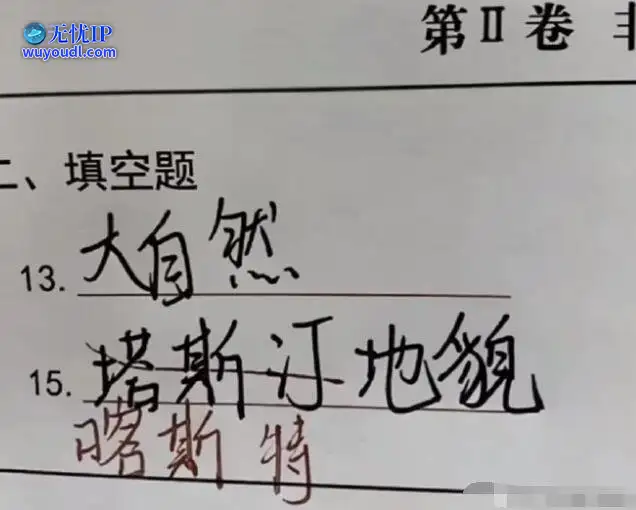 无忧IP
wuyoudl.com
第Ⅱ卷
二、填空题
13. 大自然
15. 塔斯汀地貌
喀斯特